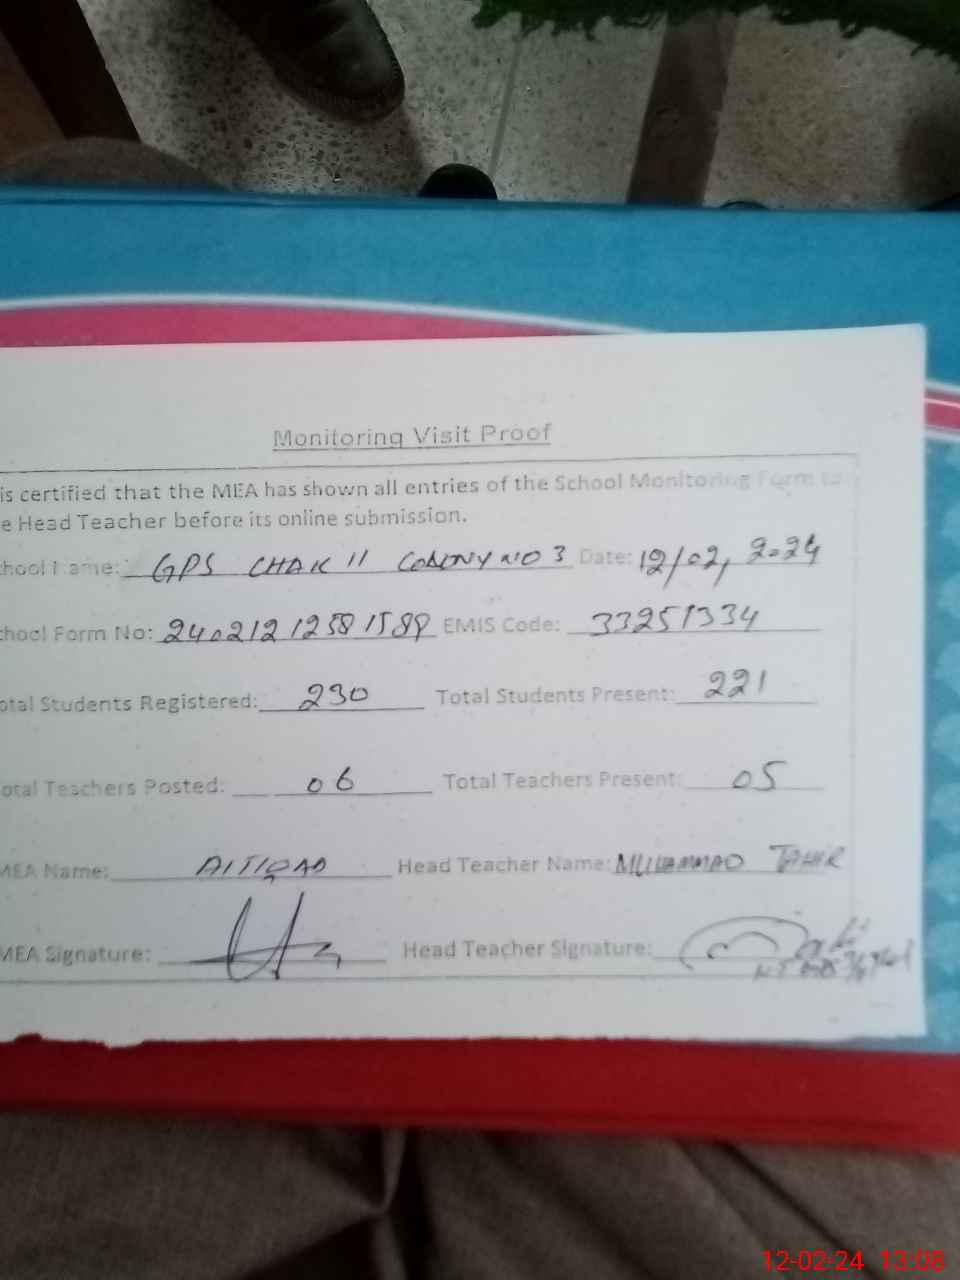 Monitoring Visit Proof
is certified that the MEA has shown all entries of the School Monitoring Form to
e Head Teacher before its online submission.
chool Name: GPS CHAK 11 COLONY NO 3 Date: 12/02, 2024
chool Form No: 24021212581589 EMIS Code: 33251334
otal Students Registered: 230 Total Students Present: 221
otal Teachers Posted: 06 Total Teachers Present: 05
MEA Name: Head Teacher Name: MUHAMMAD TAHIR
MEA Signature: Head Teacher Signature:
12-02-24 13:08